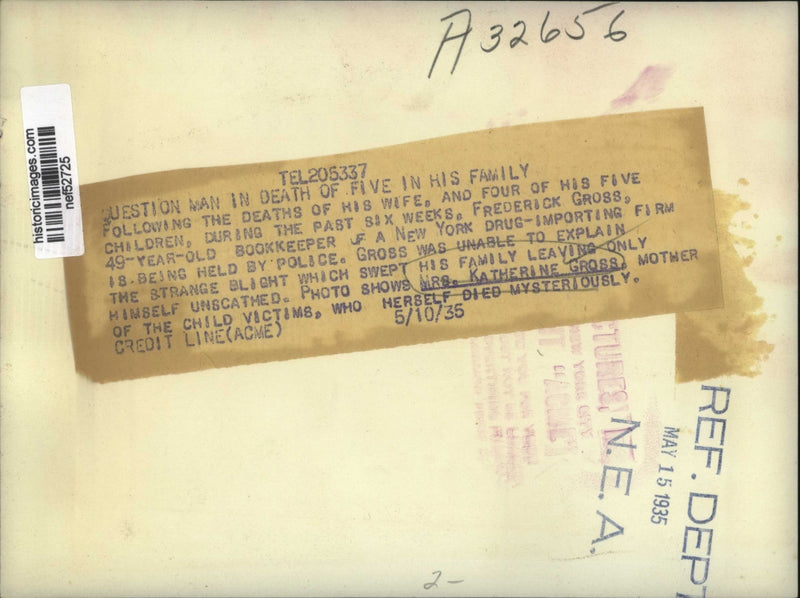 A32656
historicimages.com
nef52725
TEL205337
QUESTION MAN IN DEATH OF FIVE IN HIS FAMILY
FOLLOWING THE DEATHS OF HIS WIFE, AND FOUR OF HIS FIVE
CHILDREN, DURING THE PAST SIX WEEKS, FREDERICK GROSS,
49-YEAR-OLD BOOKKEEPER F A NEW YORK DRUG-IMPORTING FIRM
IS BEING HELD BY POLICE. GROSS WAS UNABLE TO EXPLAIN
THE STRANGE BLIGHT WHICH SWEPT HIS FAMILY LEAVING ONLY
HIMSELF UNSCATHED. PHOTO SHOWS MRS. KATHERINE GROSS, MOTHER
OF THE CHILD VICTIMS, WHO HERSELF DIED MYSTERIOUSLY.
CREDIT LINE(ACME) 5/10/35
PICTURES,
NEW YORK CITY
"ACME"
REF. DEPT
MAY 15 1935
N.E.A.
2-